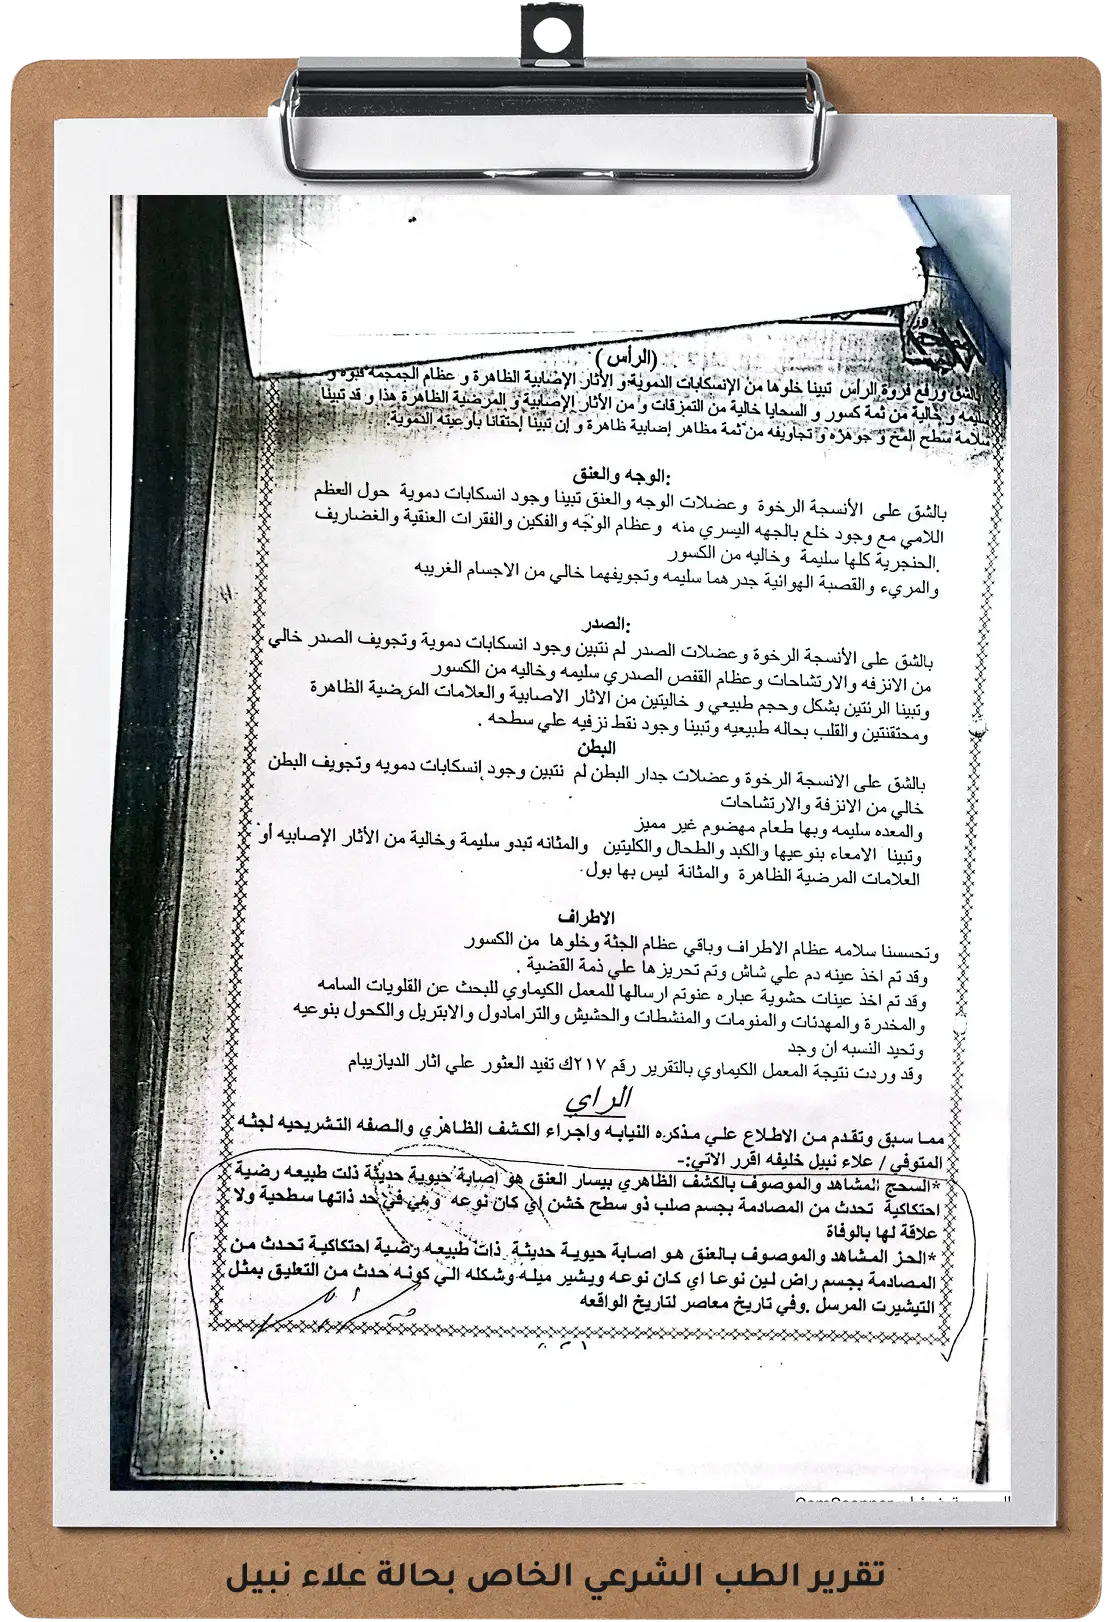 (الرأس)
بالشق ورفع فروة الرأس تبينا خلوها من الإنسكابات الدموية و الأثار الإصابية الظاهرة و عظام الجمجمة قبوة و
سليمه و خالية من ثمة كسور و السحايا خالية من التمزقات و من الأثار الإصابية و المرضية الظاهرة هذا و قد تبينا
سلامة سطح المخ و جوهره و تجاويفه من ثمة مظاهر إصابية ظاهرة و إن تبينا إحتقانا بأوعيته الدموية.
الوجه والعنق:
بالشق على الأنسجة الرخوة وعضلات الوجه والعنق تبينا وجود انسكابات دموية حول العظم
اللامي مع وجود خلع بالجهه اليسري منه وعظام الوجه والفكين والفقرات العنقية والغضاريف
الحنجرية كلها سليمة وخاليه من الكسور.
والمريء والقصبة الهوائية جدرهما سليمه وتجويفهما خالي من الاجسام الغريبه
الصدر:
بالشق على الأنسجة الرخوة وعضلات الصدر لم نتبين وجود انسكابات دموية وتجويف الصدر خالي
من الانزفه والارتشاحات وعظام القفص الصدري سليمه وخاليه من الكسور
وتبينا الرئتين بشكل وحجم طبيعي و خاليتين من الاثار الاصابية والعلامات المرضية الظاهرة
ومحتقنتين والقلب بحاله طبيعيه وتبينا وجود نقط نزفيه علي سطحه .
البطن
بالشق على الانسجة الرخوة وعضلات جدار البطن لم نتبين وجود إنسكابات دمويه وتجويف البطن
خالي من الانزفة والارتشاحات
والمعده سليمه وبها طعام مهضوم غير مميز
وتبينا الامعاء بنوعيها والكبد والطحال والكليتين والمثانه تبدو سليمة وخالية من الأثار الإصابيه أو
العلامات المرضية الظاهرة والمثانة ليس بها بول.
الاطراف
وتحسسنا سلامه عظام الاطراف وباقي عظام الجثة وخلوها من الكسور
وقد تم اخذ عينه دم علي شاش وتم تحريزها علي ذمة القضية .
وقد تم اخذ عينات حشوية عباره عنوتم ارسالها للمعمل الكيماوي للبحث عن القلويات السامه
والمخدرة والمهدئات والمنومات والمنشطات والحشيش والترامادول والابتريل والكحول بنوعيه
وتحيد النسبه ان وجد
وقد وردت نتيجة المعمل الكيماوي بالتقرير رقم ٢١٧ك تفيد العثور علي اثار الديازيبام
الراي
مما سبق وتقدم من الاطلاع علي مذكره النيابه واجراء الكشف الظاهري والصفه التشريحيه لجثه
المتوفي / علاء نبيل خليفه اقرر الاتي:-
*السحج المشاهد والموصوف بالكشف الظاهري بيسار العنق هو إصابة حيوية حديثة ذلت طبيعه رضية
احتكاكية تحدث من المصادمة بجسم صلب ذو سطح خشن اي كان نوعه وهي في حد ذاتها سطحية ولا
علاقة لها بالوفاة
*الحز المشاهد والموصوف بالعنق هو اصابة حيوية حديثة ذات طبيعه رضية احتكاكية تحدث من
المصادمة بجسم راض لين نوعا اي كان نوعه ويشير ميله وشكله الي كونه حدث من التعليق بمثل
التيشيرت المرسل .وفي تاريخ معاصر لتاريخ الواقعه
تقرير الطب الشرعي الخاص بحالة علاء نبيل